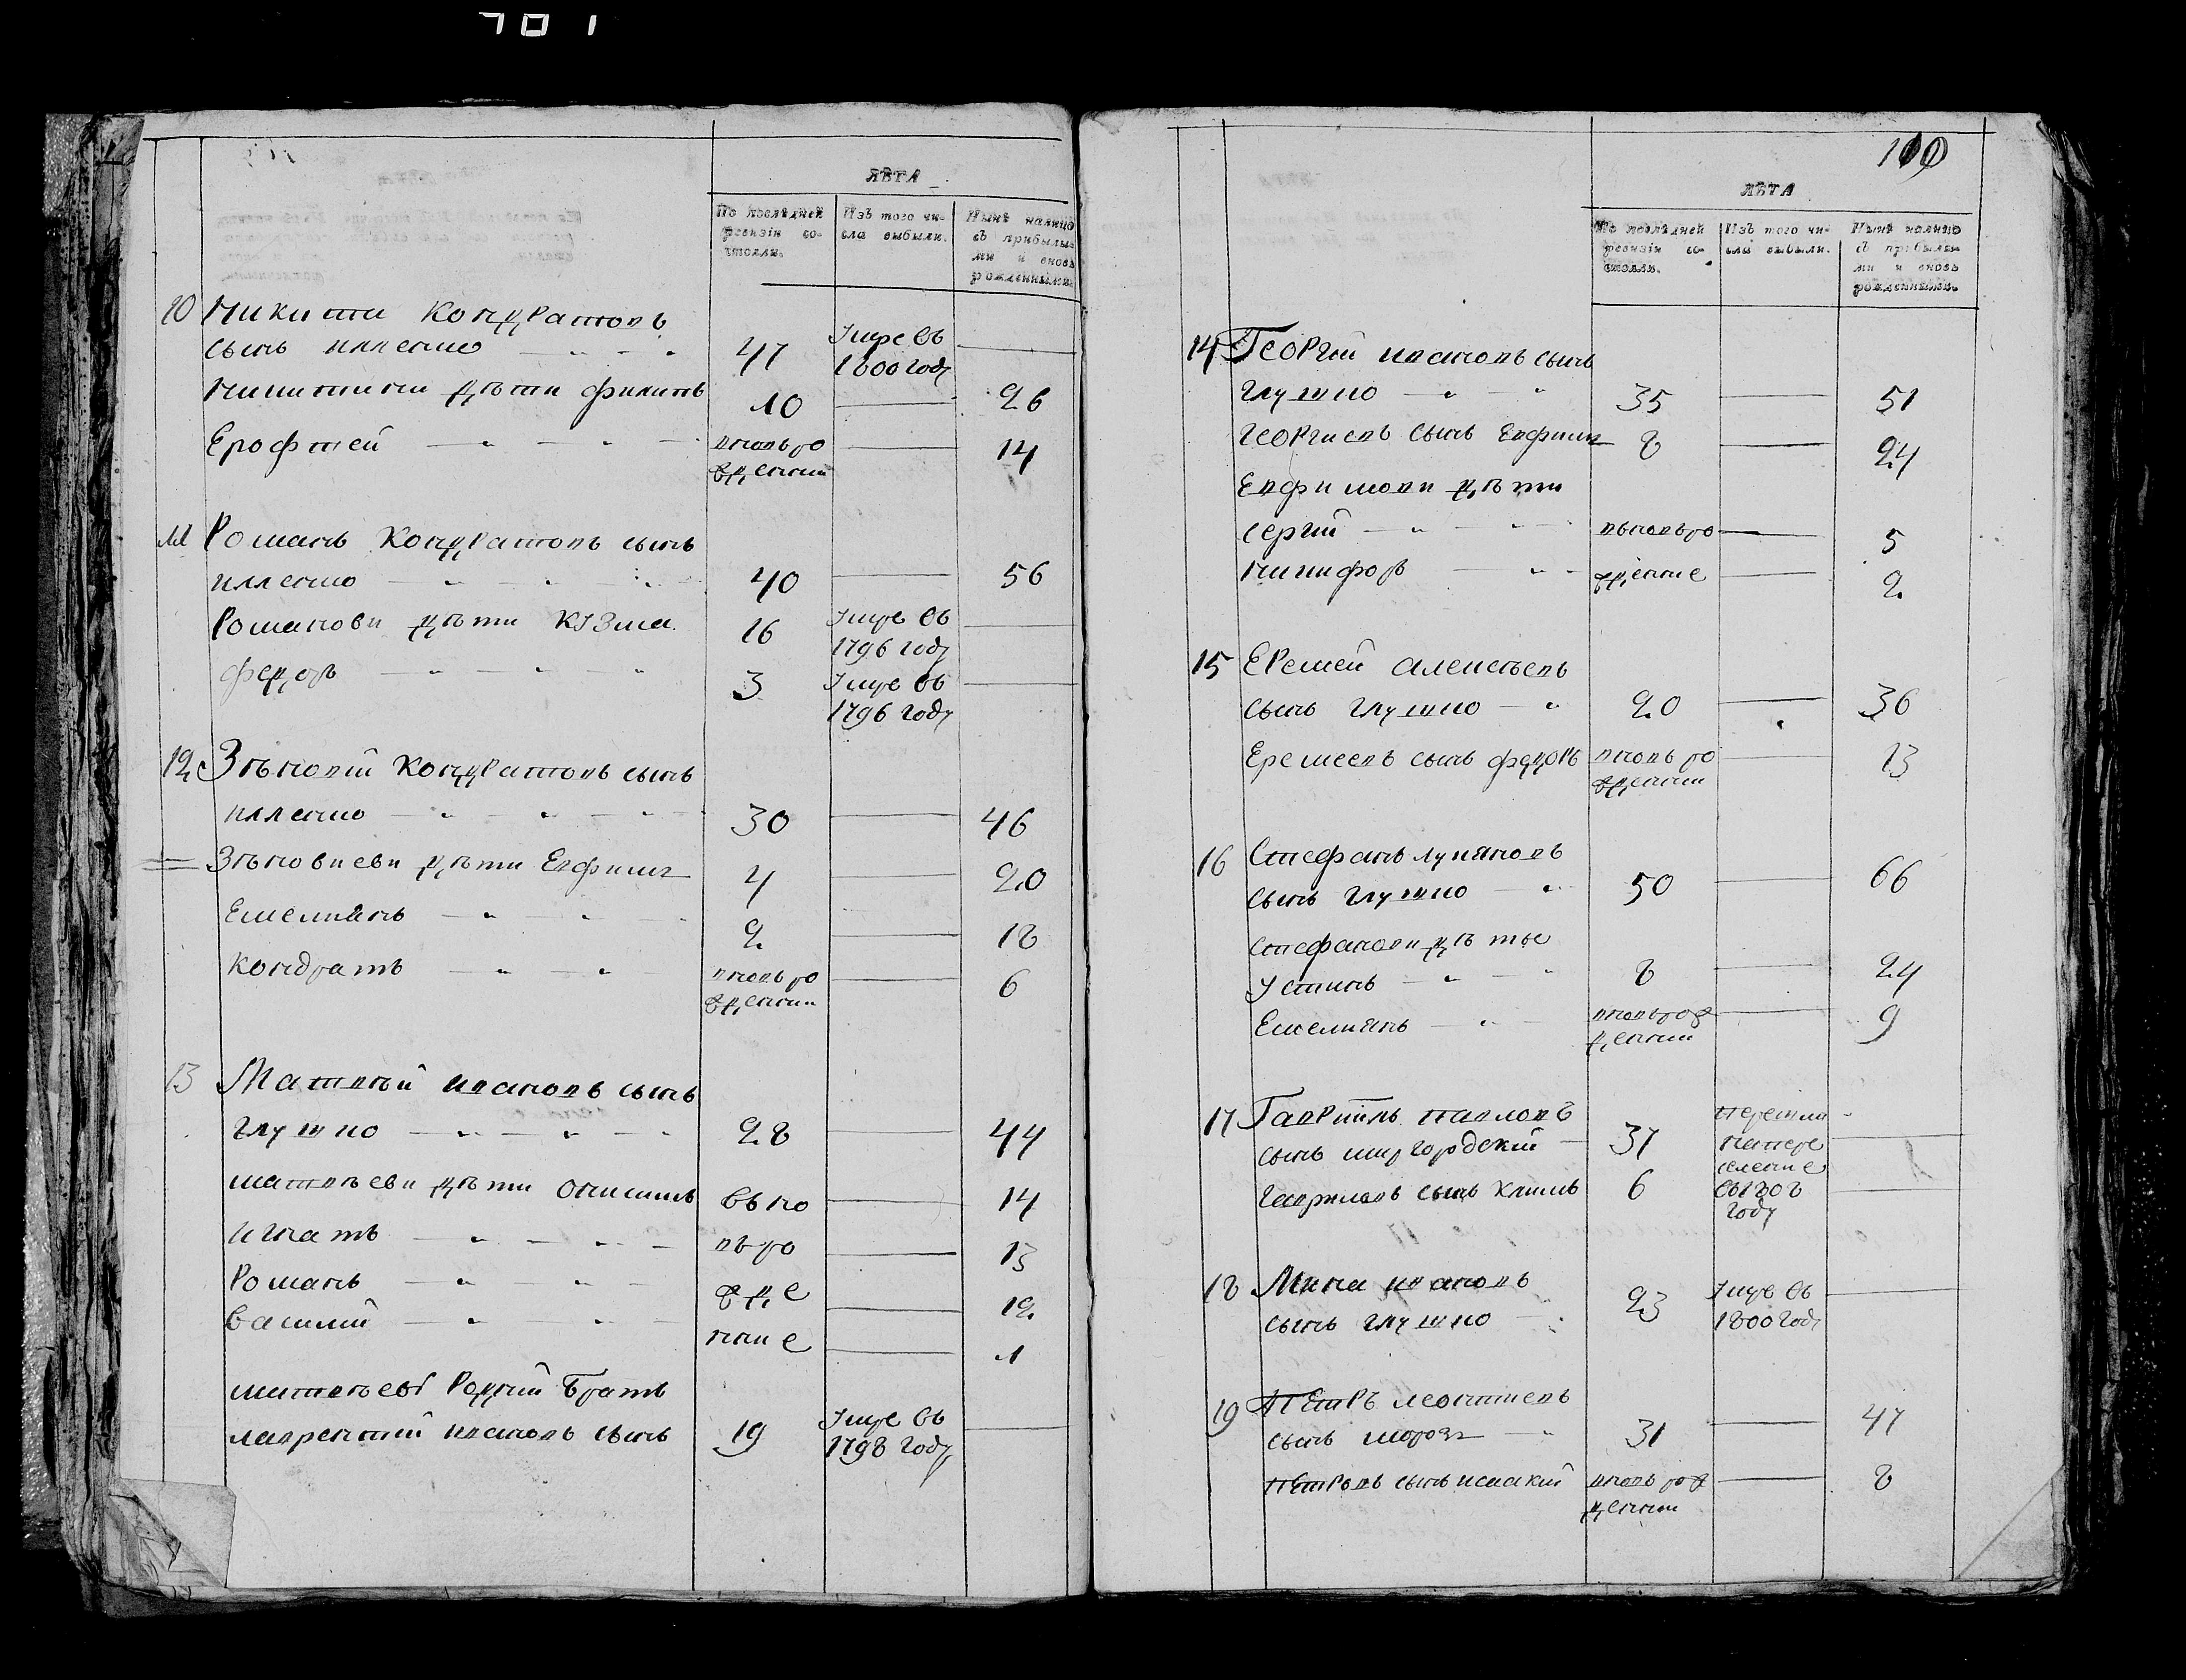 701
ЛѢТА
По послѣдней ревизіи состояли.
Изъ того числа выбыли.
Нынѣ налицо съ прибылыми и вновь рожденными.
10 Никита Кондратовъ
сынъ 47 умре въ 1800 году
Никитини дѣти Филипъ 10 26
Ерофтей вновь рожденний 14
11 Романъ Кондратовъ сынъ
40 56
Романови дѣти Кузма 16 умре въ 1796 году
Федоръ 3 умре въ 1796 году
12 Зѣновій Кондратовъ сынъ
30 46
Зѣновиеви дѣти Евфимъ 4 20
Емелиянъ 2 18
Кондратъ вновь рожденний 6
13 Матвѣй Ивановъ сынъ
Глушко 28 44
Матвѣеви дѣти Онисимъ вно 14
Игнатъ въ ро 13
Романъ жде 12
Василий нние 1
Матвѣевъ родний братъ
Лаврентий Ивановъ сынъ 19 умре въ 1798 году
ЛѢТА
По послѣдней ревизіи состояли.
Изъ того числа выбыли.
Нынѣ налицо съ прибылыми и вновь рожденными.
14 Георгий Ивановъ сынъ
Глушко 35 51
Георгиевъ сынъ Евфимъ 8 24
Евфимови дѣти
Сергий вновь ро 5
Никифоръ жденние 2
15 Еремей Алексѣевъ
сынъ Глушко 20 36
Еремеевъ сынъ Федоръ вновь рожденний 13
16 Стефанъ Лукяновъ
сынъ Глушко 50 66
Стефанови дѣти
Устинъ 8 24
Емелиянъ вновь рожденний 9
17 Гавриилъ Павловъ
сынъ Миргородский 37 перешли на переселение въ 1808 году
Гавриловъ сынъ Климъ 6
18 Мина Ивановъ
сынъ Глушко 23 умре въ 1800 году
19 Петръ Леонтиевъ
сынъ Мороз 31 47
Петровъ сынъ Исаакий вновь рожденний 8